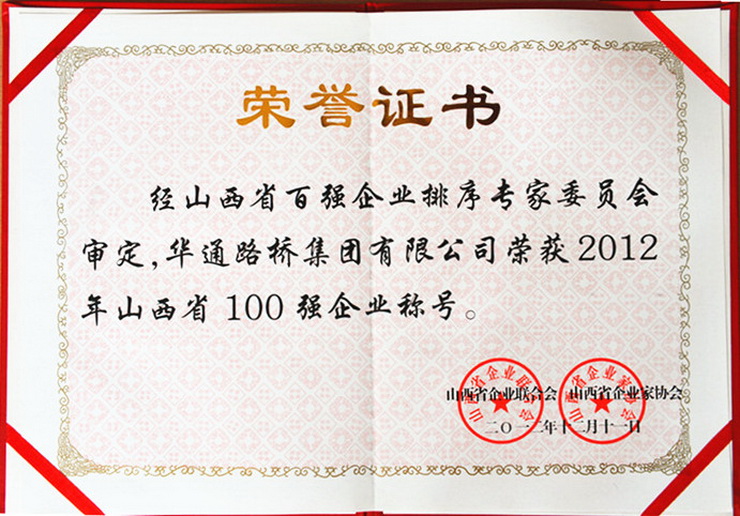 荣誉证书
经山西省百强企业排序专家委员会
审定，华通路桥集团有限公司荣获2012
年山西省100强企业称号。
山西省企业联合会 山西省企业家协会
二〇一二年十二月十一日
山西省企业联合会
山西省企业家协会